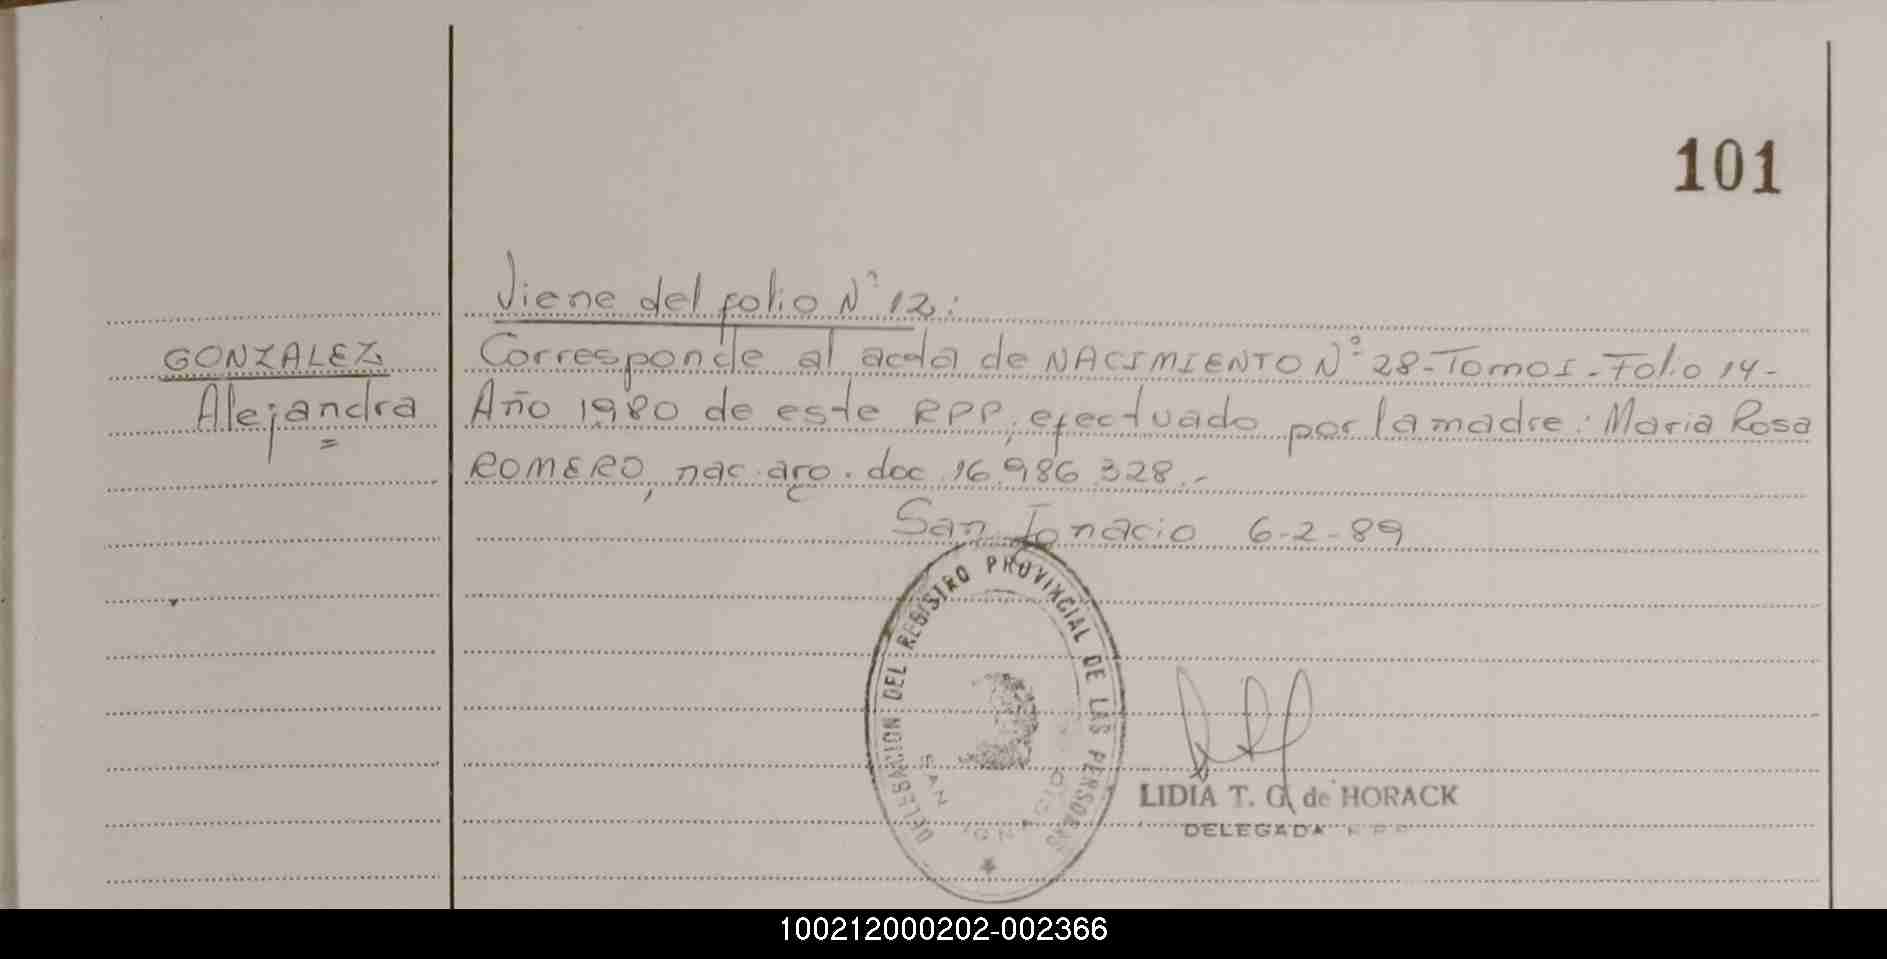 101
Viene del folio N° 12:
GONZALEZ
Alejandra
Corresponde al acta de NACIMIENTO N° 28-Tomo I-Folio 14-
Año 1980 de este RPP, efectuado por la madre: Maria Rosa
ROMERO, nac. arg. doc 16.986.328.-
San Ignacio 6-2-89
DELEGACION DEL REGISTRO PROVINCIAL DE LAS PERSONAS
SAN IGNACIO
LIDIA T. G. de HORACK
DELEGADA R P P
100212000202-002366